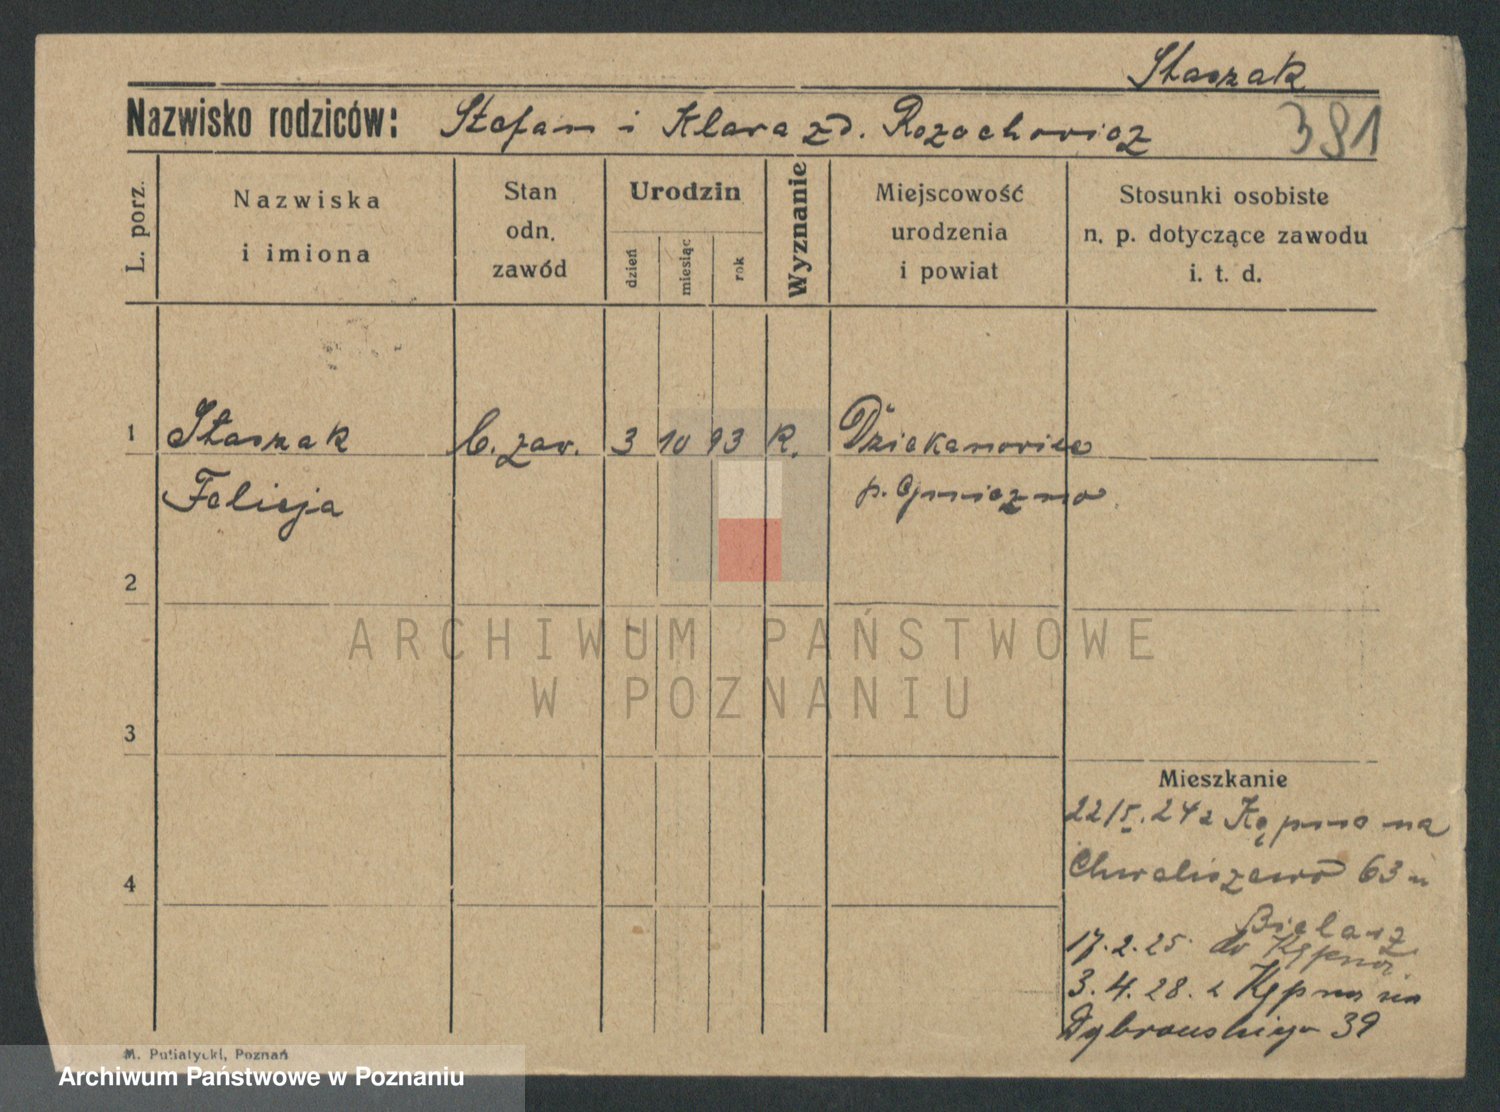 Staszak
Nazwisko rodziców: Stefan i Klara zd. Rozochowicz
391
L. porz.
Nazwiska
i imiona
Stan
odn.
zawód
Urodzin
dzień
miesiąc
rok
Wyznanie
Miejscowość
urodzenia
i powiat
Stosunki osobiste
n. p. dotyczące zawodu
i. t. d.
1 Staszak b. zaw. 3 10 93 R. Dziekanowice
Felicja p. Gniezno
2
ARCHIWUM PAŃSTWOWE
W POZNANIU
3
Mieszkanie
22/5.24 z Kępno na
4
Chwaliszewo 63 u
Bielasz
17.2.25 do Kępna.
3.4.28. z Kępna na
Dąbrowskiego 39
M. Putiatycki, Poznań
Archiwum Państwowe w Poznaniu